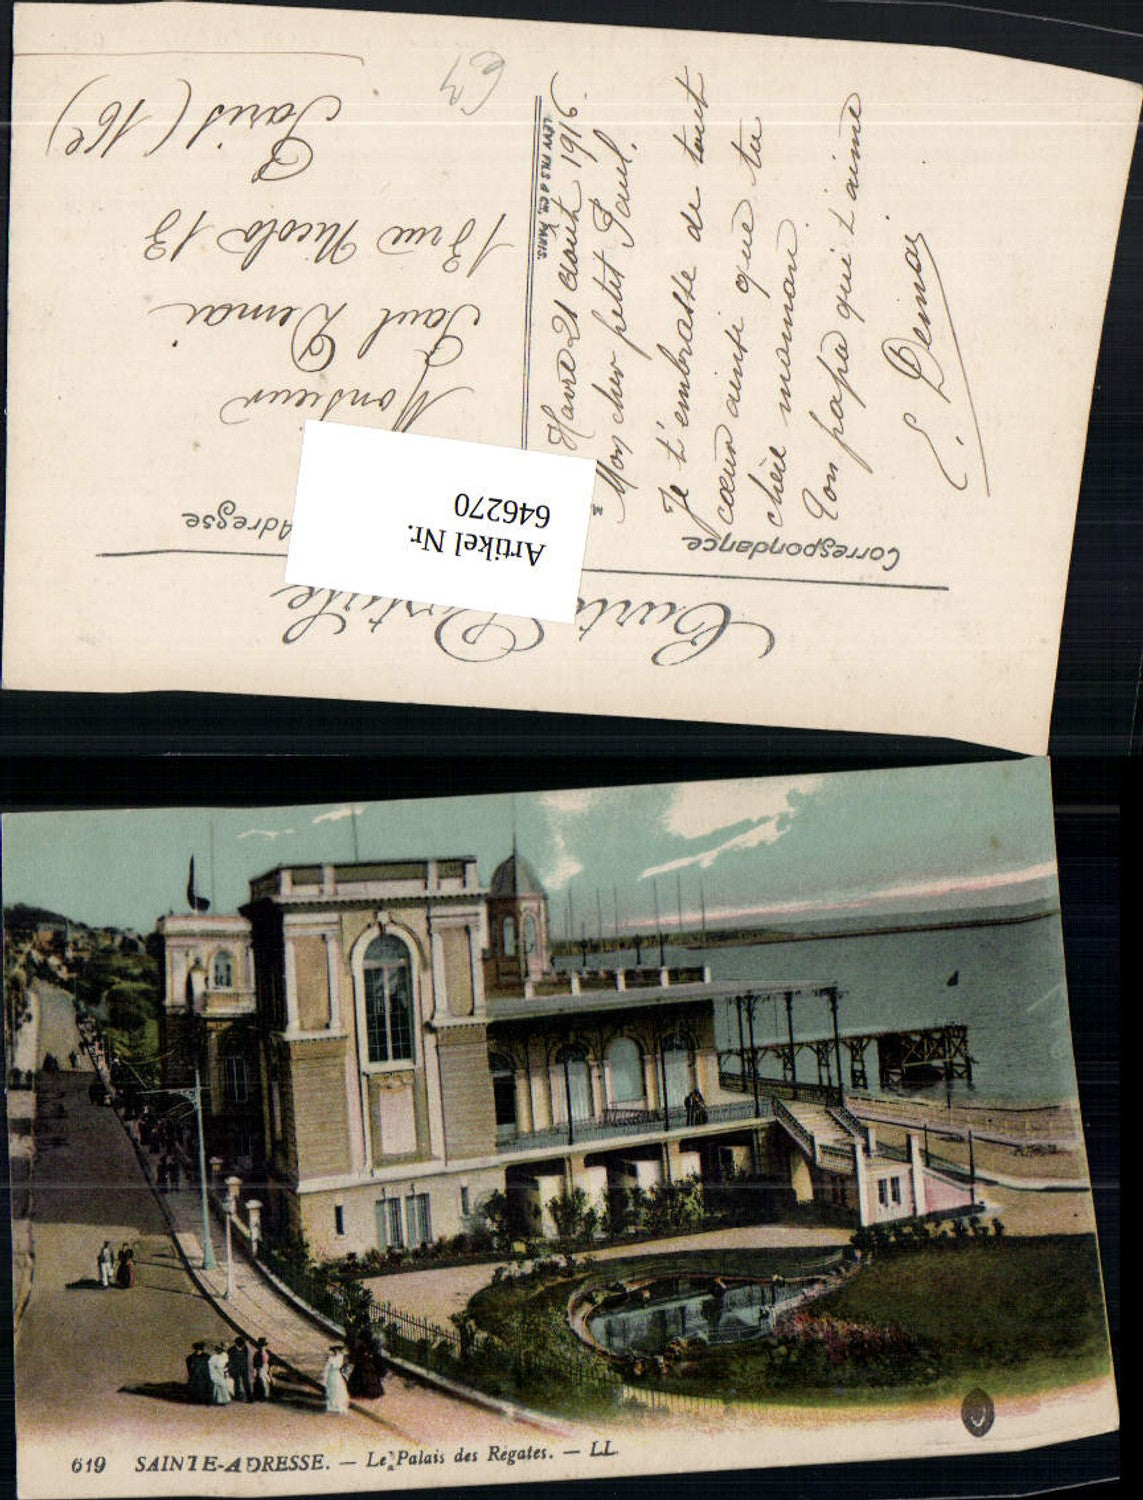 Carte Postale
Correspondance
Adresse
Havre 21 Août 1916.
Mon cher petit Paul,
Je t'embrasse de tout
cœur ainsi que ta
chère maman
Ton papa qui t'aime
E. Demai
LEVY FILS & Cie, PARIS.
Monsieur
Paul Demai
13 rue Nicolo 13
Paris (16e)
Artikel Nr.
646270
619 SAINTE-ADRESSE. — Le Palais des Régates. — LL.